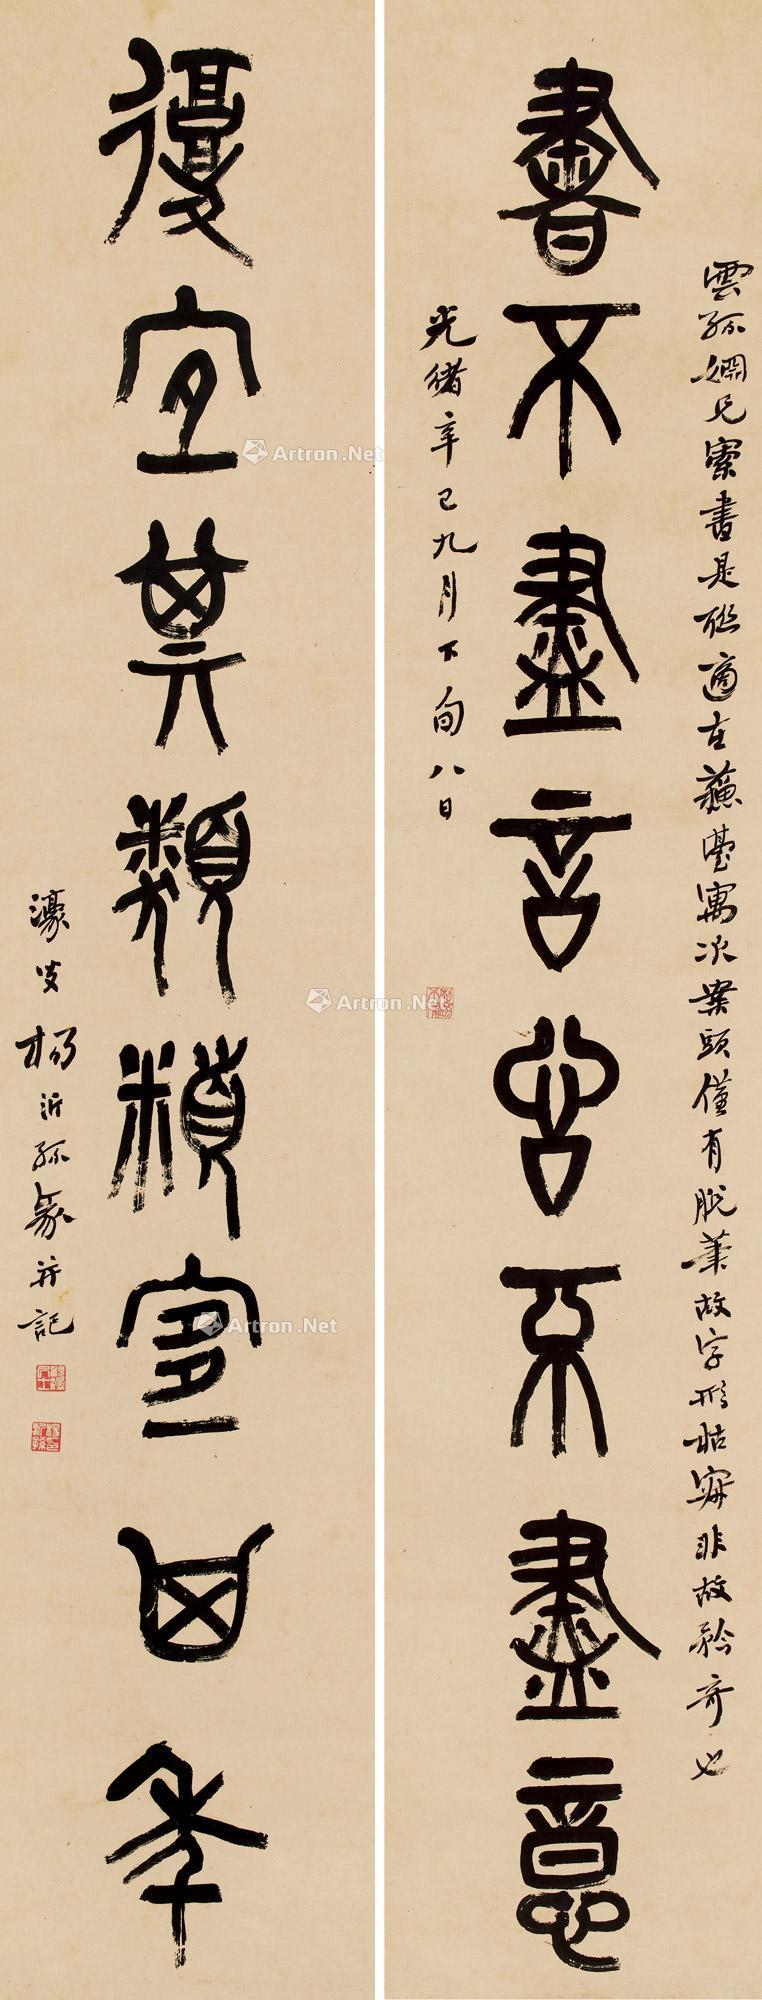 雲孫婣兄索書是聯適在蘓臺寓次案頭僅有脫筆故字形枯窘非故矜奇也
書不盡言言不盡意
光緒辛巳九月下旬八日
復宜其類類宜其年
濠叟楊沂孫篆并記
Artron.Net
Artron.Net
Artron.Net
Artron.Net